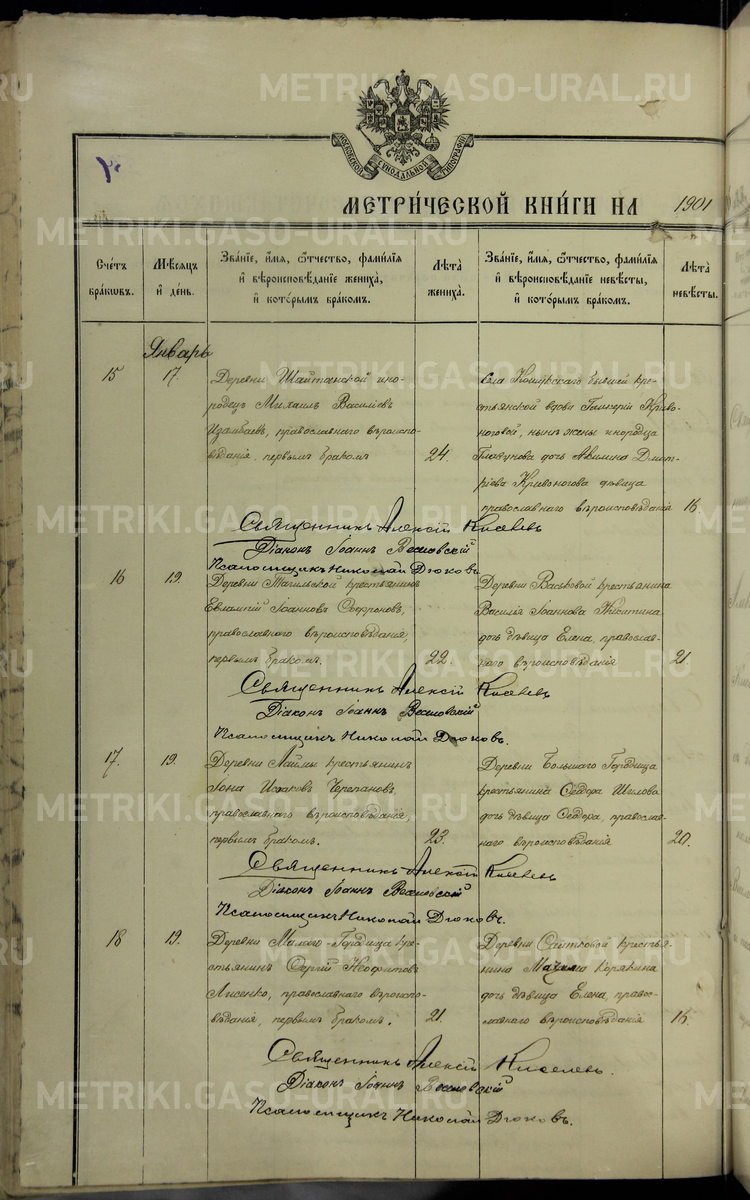 МОСКОВСКОЙ СѴНОДАЛЬНОЙ ТИПОГРАФІИ
МЕТРИ́ЧЕСКОЙ КНИ́ГИ НА 1901
Счетъ бра́ковъ.
Мѣсяцъ и́ де́нь.
Зва́нїе, и́мя, ѻ҆́тчество, фами́лїя и҆ вѣроисповѣ́данїе жениха̀, и҆ кото́рымъ бра́комъ.
Лѣ́та жениха̀.
Зва́нїе, и́мя, ѻ҆́тчество, фами́лїя и҆ вѣроисповѣ́данїе невѣ́сты, и҆ кото́рымъ бра́комъ.
Лѣ́та невѣ́сты.
Январь
15
17.
Деревни Шайтанской ино-
родецъ Михаилъ Василіевъ
православнаго вѣроиспо-
вѣданія, первымъ бракомъ
24.
Села Кошукскаго бывшей кре-
стьянской вдовы Гликеріи Криво-
ноговой, нынѣ жены инородца
дочь Акилина Димит-
ріева Кривоногова дѣвица
православнаго вѣроисповѣданія
16.
Священникъ Алексій Киселевъ
Діаконъ Іоаннъ
Псаломщикъ Николай Дюковъ.
16
19.
Деревни Тагильской крестьянинъ
Евлампій Іоанновъ Софроновъ,
православнаго вѣроисповѣданія,
первымъ бракомъ.
22.
Деревни Васьковой крестьянина
Василія Іоаннова Никитина
дочь дѣвица Елена, православ-
наго вѣроисповѣданія
21.
Священникъ Алексій Киселевъ
Діаконъ Іоаннъ
Псаломщикъ Николай Дюковъ.
17.
19.
Деревни Лаймы крестьянинъ
Іона Исааковъ Черепановъ,
православнаго вѣроисповѣданія,
первымъ бракомъ.
23.
Деревни Большаго Городища
крестьянина Ѳеодора Шилова
дочь дѣвица Ѳеодора, православ-
наго вѣроисповѣданія
20.
Священникъ Алексій Киселевъ
Діаконъ Іоаннъ
Псаломщикъ Николай Дюковъ.
18
19.
Деревни Малаго-Городища кре-
стьянинъ Сергій Неофитовъ
Лисенко, православнаго вѣроиспо-
вѣданія, первымъ бракомъ.
21.
Деревни Сайтковой крестья-
нина Корякина
дочь дѣвица Елена, право-
славнаго вѣроисповѣданія
18.
Священникъ Алексій Киселевъ.
Діаконъ Іоаннъ
Псаломщикъ Николай Дюковъ.
METRIKI.GASO-URAL.RU